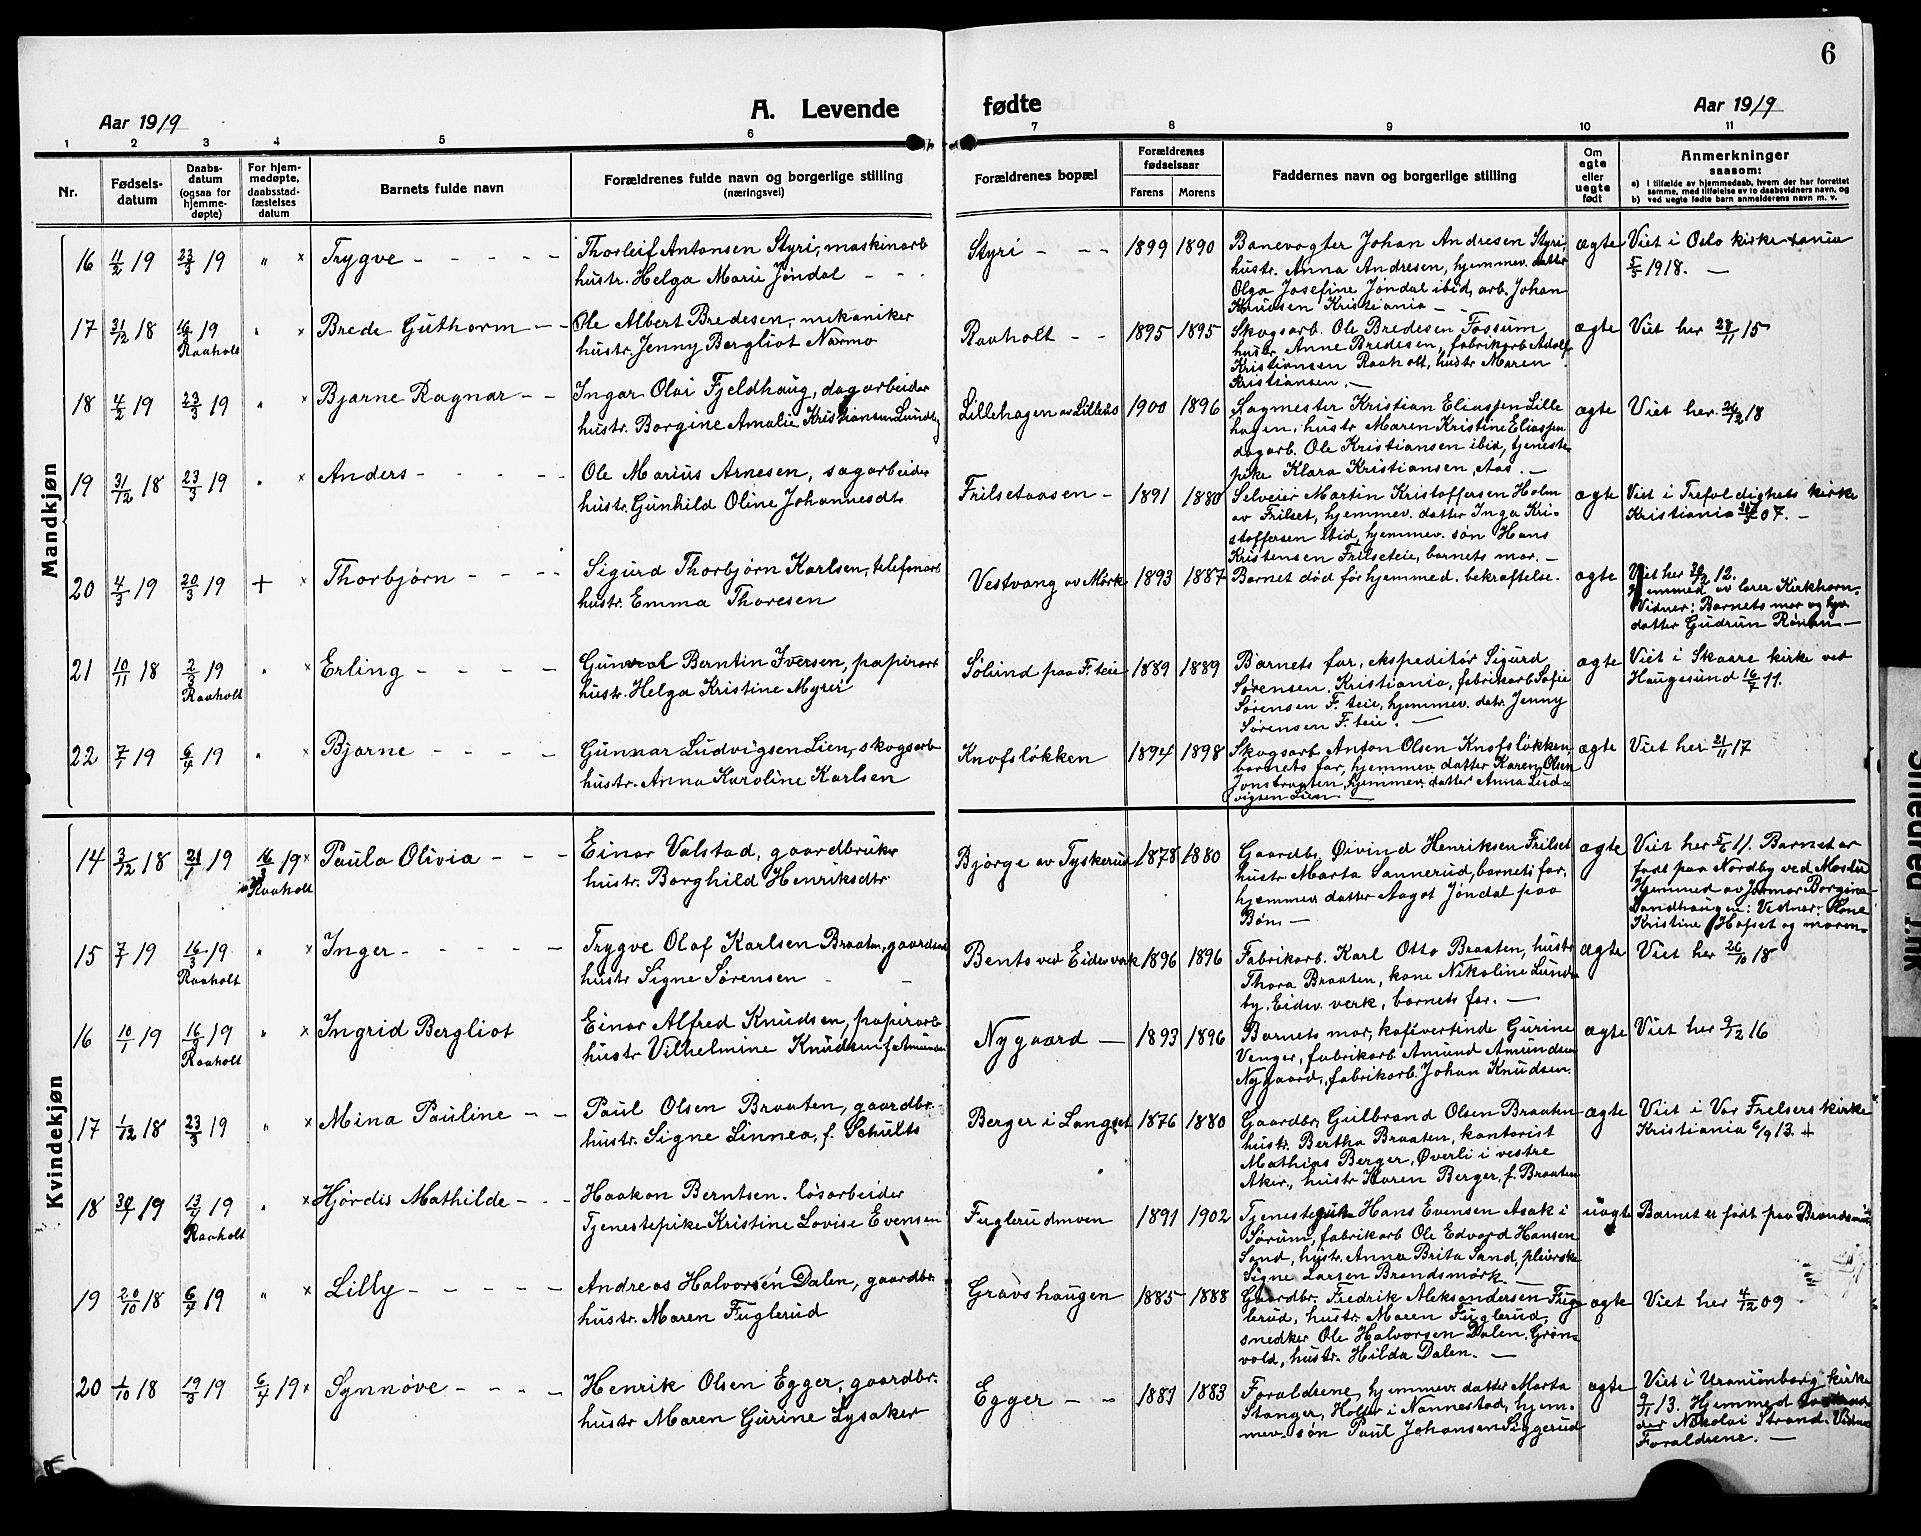 6
Aar 1919
A. Levende
fødte
Aar 1919
1 2 3 4 5 6
7 8 9 10 11
Nr.
Fødsels-
datum
Daabs-
datum
(ogsaa for
hjemme-
døpte)
For hjem-
medøpte,
daabsstad-
fæstelses
datum
Barnets fulde navn
Forældrenes fulde navn og borgerlige stilling
(næringsvei)
Forældrenes bopæl
Forældrenes
fødselsaar
Farens Morens
Faddernes navn og borgerlige stilling
Om
egte
eller
uegte
født
Anmerkninger
saasom:
a) I tilfælde av hjemmedaab, hvem der har forrettet
samme, med tilføielse av to daabsvidners navn, og
b) ved uegte fødte barn anmelderens navn m. v.
Mandkjøn
16 11/2 19 23/3 19 " × Trygve - - - - -
Thorleif Antonsen Styri, maskinarb
hustr. Helga Marie Jøndal - - -
Styri - - - 1899 1890
Banevogter Johan Andresen Styri,
hustr. Anna Andresen, hjemmev. datter
Olga Josefine Jøndal ibid, arb. Johan
Knudsen Kristiania - -
ægte
Viet i Oslo kirke
5/5 1918. -
17 31/12 18 16/3 19 " × Brede Guthorm - -
Raaholt
Ole Albert Bredesen, mekaniker
hustr. Jenny Bergliot Narmo
Raaholt - - 1895 1895
Skogsarb. Ole Bredesen Fossum,
hustr. Anne Bredesen, fabrikarb Adolf
Kristiansen Raaholt, hustr Maren
Kristiansen. -
ægte
Viet her 28/11 15
18 4/2 19 23/3 19 " × Bjarne Ragnar - -
Ingar Olai Fjeldhaug, dagarbeider
hustr. Borgine Amalie Kristiansen
Lillehagen av Lillehs 1900 1896
Sagmester Kristian Eliassen Lille
hagen, hustr Maren Kristine Eliassen
dagarb. Ole Kristiansen ibid, tjeneste
pike Klara Kristiansen, Aas. -
ægte
Viet her 26/12 18
19 31/12 18 23/3 19 " × Anders - - - -
Ole Marius Arnesen, sagarbeider
hustr. Gunhild Oline Johannesdt
Frilsetaasen - 1891 1880
Selveier Martin Kristoffersen Holm
av Frilset, hjemmev. datter Inga Kri-
stoffersen ibid, hjemmev. søn Hans
Kristensen Frilseteie, barnets mor. -
ægte
Viet i Trefoldighets kirke
Kristiania 07. -
20 4/3 19 20/3 19 + × Thorbjørn - - - -
Sigurd Thorbjørn Karlsen, telefonarb
hustr. Emma Thoresen
Vestvang av Mørk 1893 1887
Barnet død før hjemmed. bekræftelse.
ægte
Viet her 12.
Hjemmed av lærer Kirkhorn.
Vidner: Barnets mor og hjv
datter Gudrun -
21 10/11 18 2/3 19 " × Erling - - - -
Raaholt
Gunvat Berntin Iversen, papirarb
hustr. Helga Kristine Myrer
Sølund paa F. teie 1889 1889
Barnets far, ekspeditør Sigurd
Sørensen, Kristiania, fabrikarb Sofie
Sørensen F. teie, hjemmev. datr. Jenny
Sørensen F. teie. -
ægte
Viet i Skaare kirke ved
Haugesund 16/7 11.
22 7/1 19 6/4 19 " × Bjarne - - - -
Gunnar Ludvigsen Lien, skogsarb
hustr. Anna Karoline Karlsen
Knofsløkken 1894 1898
Skogsarb. Anton Olsen Knofsløkken,
barnets far, hjemmev. datter Karen Olsen
Jonsbraaten, hjemmev. datter Anna Lud-
vigsen Lien -
ægte
Viet her 21/11 17
Kvindekjøn
14 3/12 18 21/1 19 16/3 19 × Paula Olivia - - -
Raaholt
Einar Valstad, gaardbruker
hustr. Borghild Henriksdtr
Bjørge av Tyskerud 1878 1880
Gaardbr. Øivind Henriksen Frilset
hustr Marta Sannerud, barnets far,
hjemmev datter Aagot Jøndal paa
Bøn. -
ægte
Viet her 5/6 11. Barnet er
født paa Nordby ved
Hjemmed av Jormor Borgine
Sandhaugen: Vidner: Kone
Kristine Hofset og moren-
15 7/1 19 16/3 19 " × Inger - - - -
Raaholt
Trygve Olaf Karlsen Braaten, gaard
hustr Signe Sørensen - -
Bents ved Eidsv verk 1896 1896
Fabrikarb. Karl Otto Braaten, hustr
Thora Braaten, kone Nikoline Lunds
by, Eidsv. verk, barnets far. -
ægte
Viet her 26/10 18
16 10/1 19 16/3 19 " × Ingrid Bergliot
Raaholt
Einar Alfred Knudsen, papirarb
hustr Vilhelmine Knudsen f. Amundsen
Nygaard - 1893 1896
Barnets mor, kafévertinde Gurine
Venger, fabrikarb Amund Amundsen
Nygaard, fabrikarb. Johan Knudsen.
ægte
Viet her 9/12 16
17 1/12 18 23/3 19 " × Mina Pauline - -
Paul Olsen Braaten, gaardbr.
hustr. Signe Linnea, f. Schults
Berger i Langset 1876 1880
Gaardbr. Gulbrand Olsen Braaten
hustr. Bertha Braaten, kontorist
Mathias Berger, Øverli i vestre
Aker, hustr Karen Berger, f. Braaten
ægte
Viet i Vor Frelsers kirke
Kristiania 6/9 13. +
18 30/1 19 13/4 19 " × Hjørdis Mathilde - - -
Raaholt
Haakon Berntsen, løsarbeider
Tjenestepike Kristine Lovise Evensen
Fuglerudmoen 1891 1902
Tjenestegut Hans Evensen Asak i
Sørum, fabrikarb Ole Edvard Hansen
Sand, hustr. Anna Brita Sand, pleierske
Signe Larsen Brandsmørk. -
uægte
Barnet er født paa
19 20/10 18 6/4 19 " × Lilly - - - - -
Andreas Halvorsen Dalen, gaardbr.
hustr. Maren Fuglerud
Gravshaugen 1885 1888
Gaardbr. Fredrik Aleksandersen Fug-
lerud, hustr. Maren Fuglerud,
snedker Ole Halvorsen Dalen, Grøn-
vold, hustr. Hilda Dalen. -
ægte
Viet her 4/12 09
20 1/10 18 19/3 19 6/4 19 × Synnøve - - - -
Henrik Olsen Egger, gaardbr.
hustr Maren Gurine Lysaker
Egger - - 1881 1883
Forældrene, hjemmev. datter Marta
Stanger, Holter i Nannestad, hjem-
mev. søn Paul Johansen Siggerud
ægte
Viet i Uranienborg kirke
9/11 13. Hjemmed
Nikolai Strand. Vidner
Forældrene. -